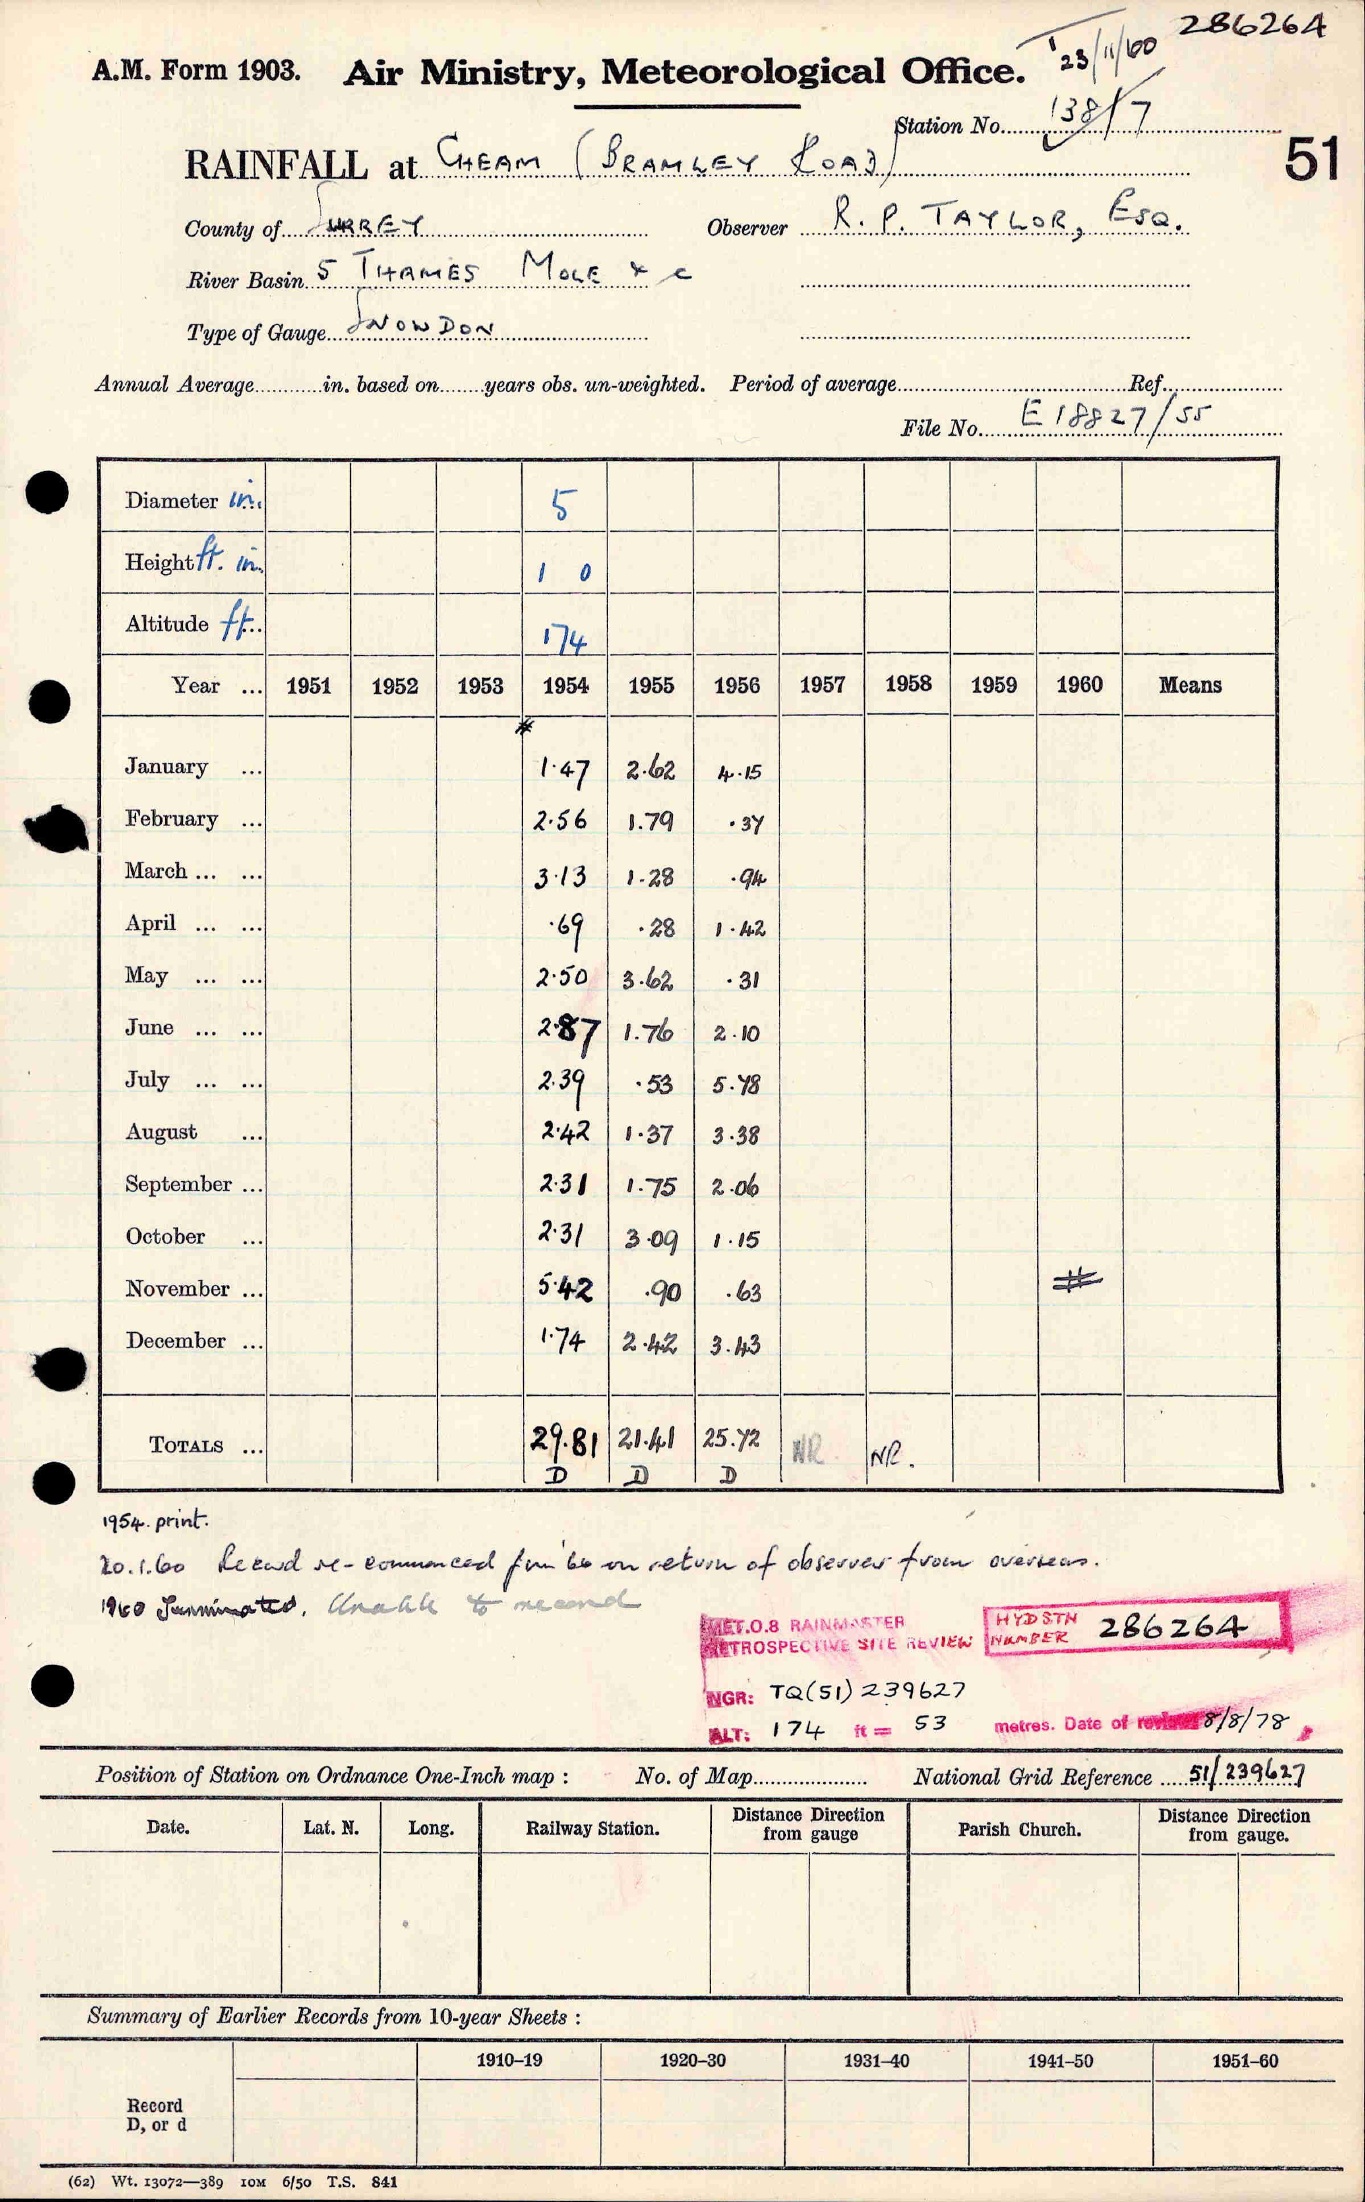 286264
23/11/60
A.M. Form 1903. Air Ministry, Meteorological Office.
Station No. 138/7
51
RAINFALL at CHEAM (BRAMLEY ROAD)
County of SURREY Observer R. P. TAYLOR, ESQ.
River Basin 5 THAMES MOLE & c
Type of Gauge SNOWDON
Annual Average in. based on years obs. un-weighted. Period of average Ref.
File No. E18827/55
Diameter in. 5
Height ft. in. 1 0
Altitude ft. 174
Year ... 1951 1952 1953 1954 1955 1956 1957 1958 1959 1960 Means
#
January ... 1.47 2.62 4.15
February ... 2.56 1.79 .37
March ... ... 3.13 1.28 .94
April ... ... .69 .28 1.42
May ... ... 2.50 3.62 .31
June ... ... 2.87 1.76 2.10
July ... ... 2.39 .53 5.78
August ... 2.42 1.37 3.38
September ... 2.31 1.75 2.06
October ... 2.31 3.09 1.15
November ... 5.42 .90 .63 #
December ... 1.74 2.42 3.43
TOTALS ... 29.81 21.41 25.72 NR NR.
D D D
1954. print.
20.1.60 Record re-commenced Jan '60 on return of observer from overseas.
1960 Terminated. Unable to record
MET.O.8 RAINMASTER
RETROSPECTIVE SITE REVIEW
HYDSTN NUMBER 286264
NGR: TQ(51)239627
ALT: 174 ft = 53 metres. Date of review 8/8/78
Position of Station on Ordnance One-Inch map : No. of Map National Grid Reference 51/239627
Date. Lat. N. Long. Railway Station. Distance from gauge Direction Parish Church. Distance from gauge. Direction
Summary of Earlier Records from 10-year Sheets :
1910–19 1920–30 1931–40 1941–50 1951–60
Record
D, or d
(62) Wt. 13072—389 10M 6/50 T.S. 841